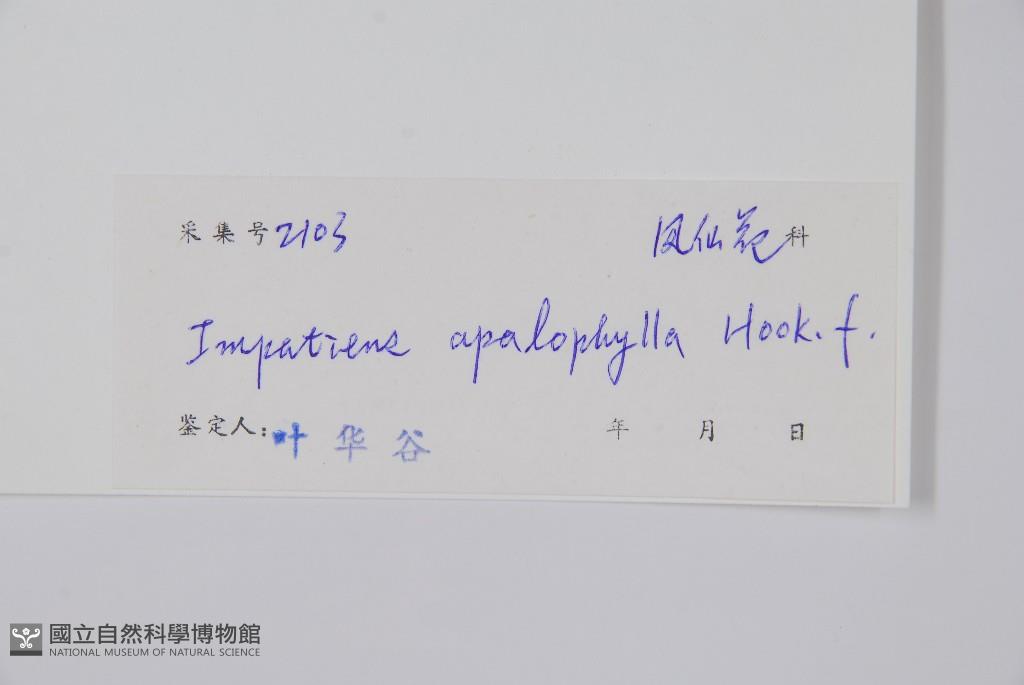 采集号 2103 凤仙花科
Impatiens apalophylla Hook. f.
鉴定人: 叶华谷 年 月 日
國立自然科學博物館
NATIONAL MUSEUM OF NATURAL SCIENCE